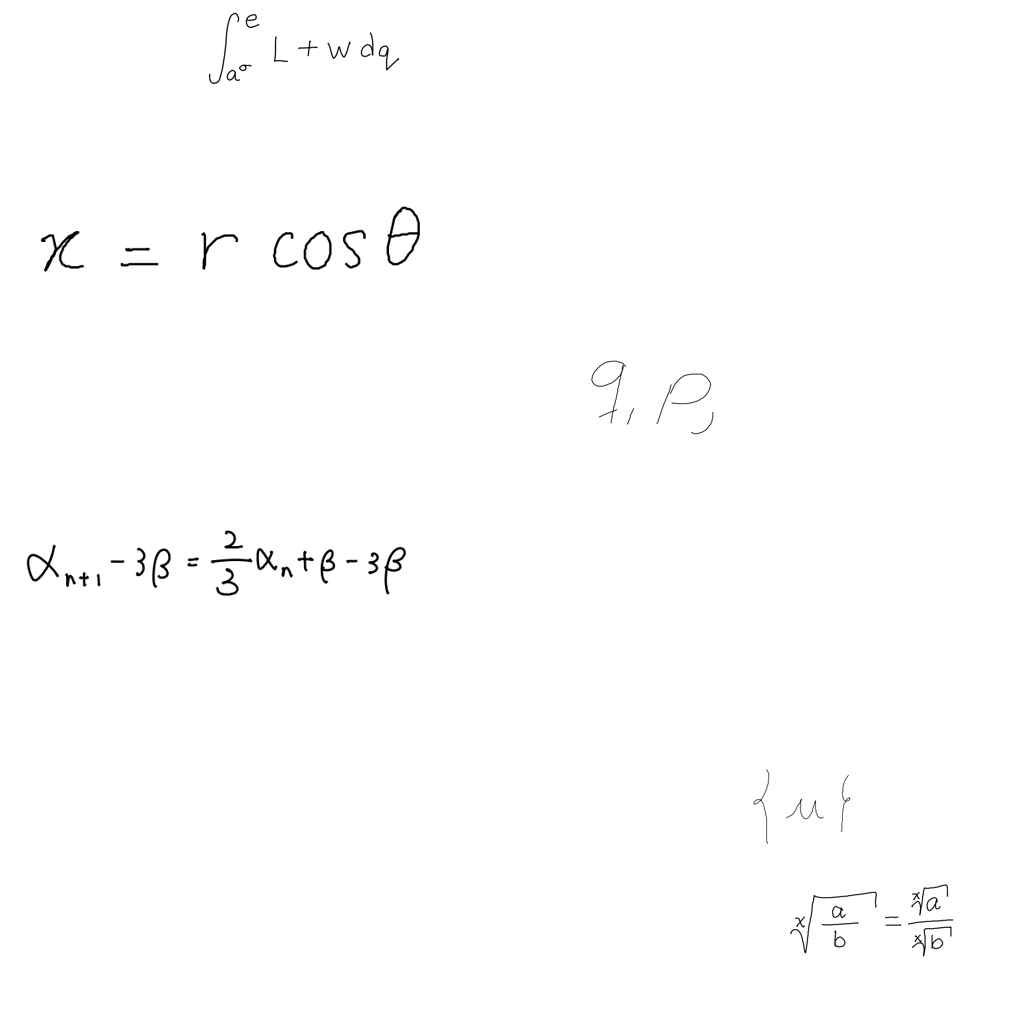 \int_{a^{\sigma}}^{e} L + w dq
x = r cos θ
q, p,
α_{n+1} - 3β = \frac{2}{3} α_n + β - 3β
{u}
\sqrt[x]{\frac{a}{b}} = \frac{\sqrt[x]{a}}{\sqrt[x]{b}}